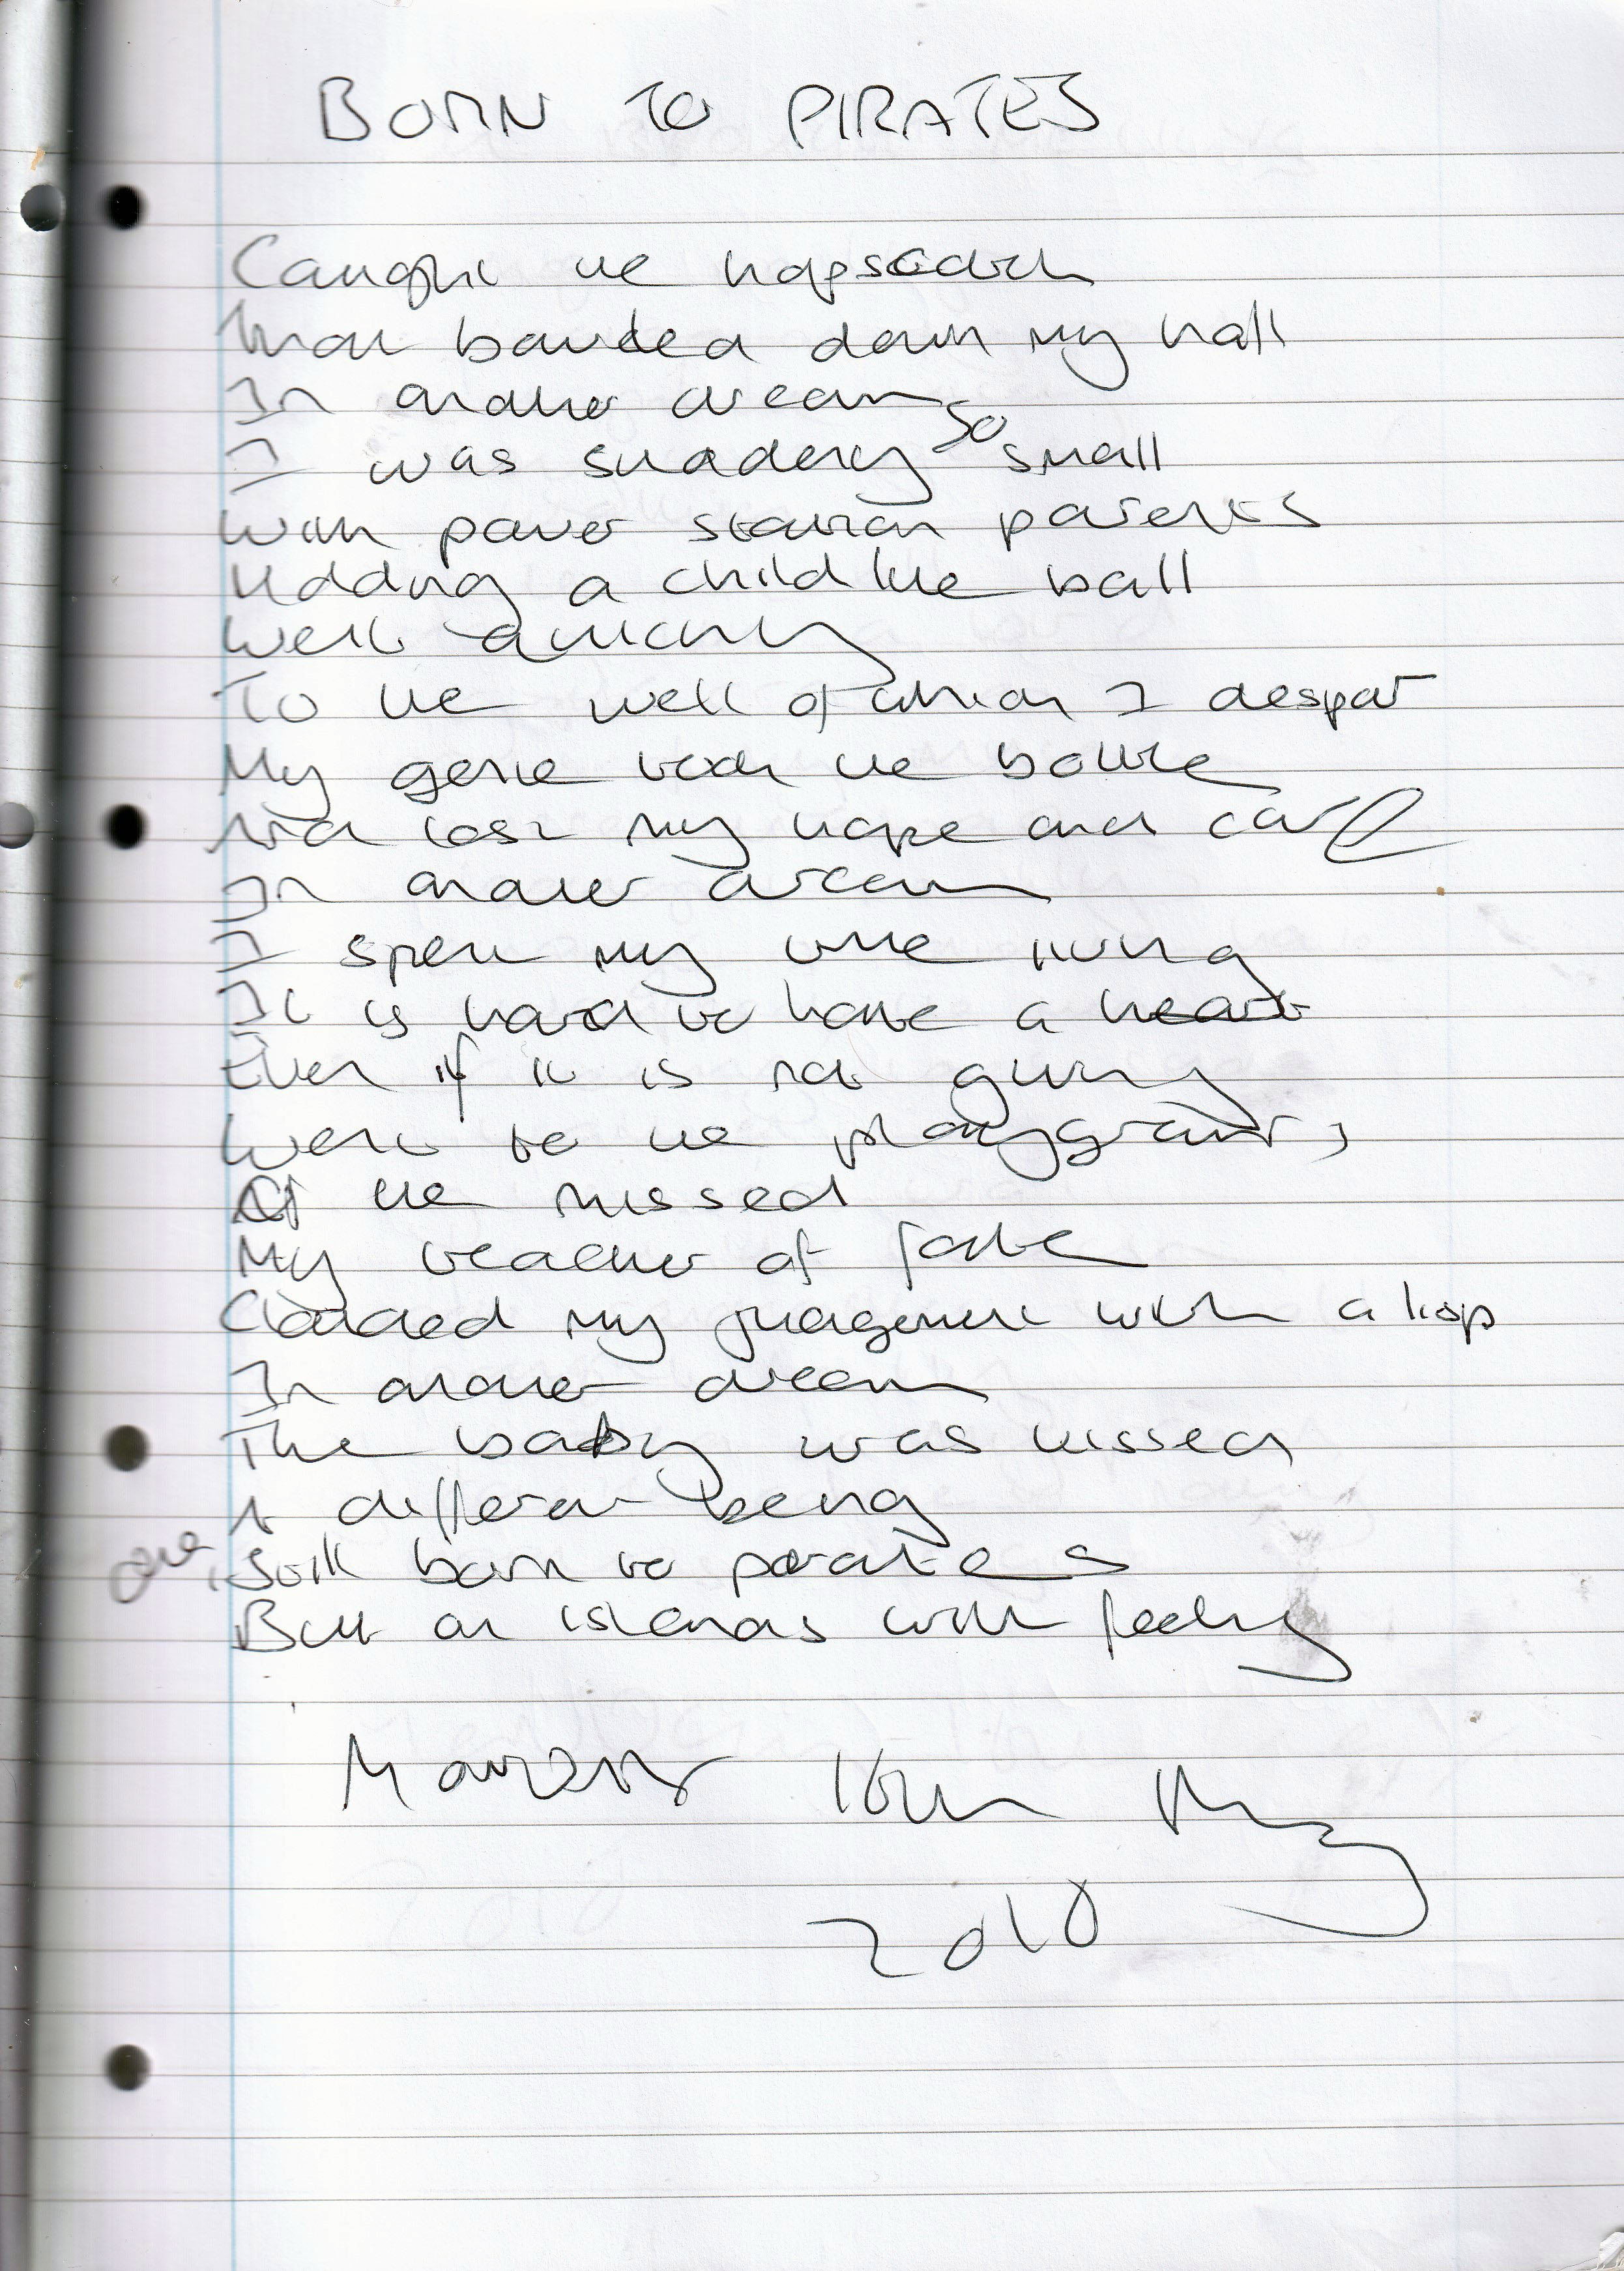 BORN TO PIRATES
Caught the hopscotch
That bounced down my hall
In another dream
I was suddenly so small
With power station parents
Holding a childlike ball
Went quickly
To the well of which I despair
My genie took the bottle
And lost my hope and care
In another dream
I spent my time living
It is hard to have a heart
Even if it is not giving
Went to the playground,
Of the missed
My teacher of fate
Clouded my judgement with a lisp
In another dream
The baby was kissed
A different being
Still born to pirates
But on islands with feeling
2010